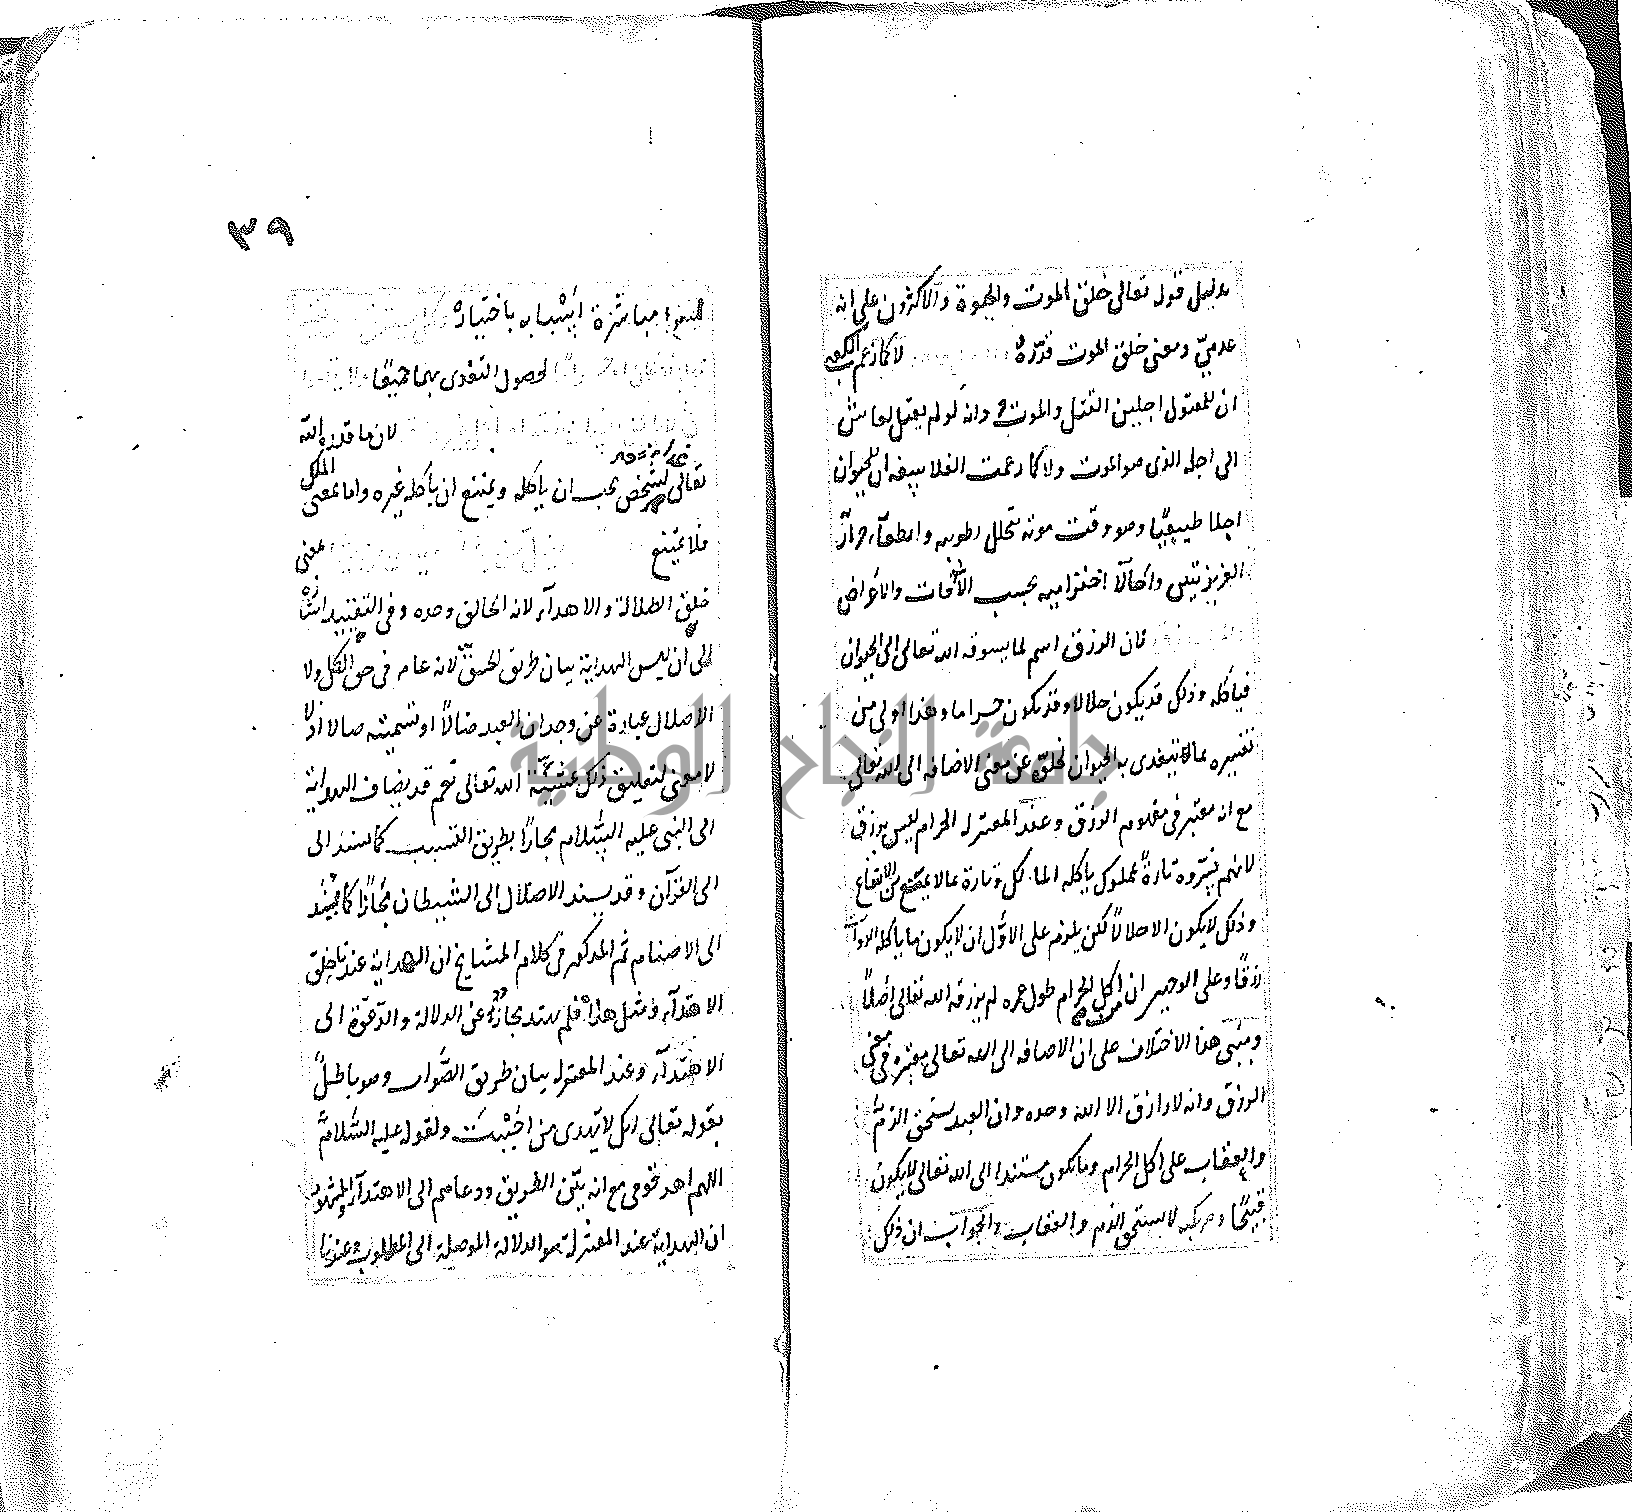 بدليل قوله تعالى خلق الموت والحيوة والاكثرون على انه
عدمي ومعنى خلق الموت قدره لا كما زعم الكعبى
ان للمقتول اجلين القتل والموت وانه لو لم يقتل لعاش
الى اجله الذى هو الموت ولا كما زعمت الفلاسفه ان للحيوان
اجلا طبيعيا وهو وقت موته بتحلل رطوبته وانطفاء حرارته
الغريزيتين واجالا اخترامية بحسب الآفات والامراض
فان الرزق اسم لما يسوقه الله تعالى الى الحيوان
فياكله وذلك قد يكون حلالا وقد يكون حراما وهذا اولى من
تفسيره بما يتغذى به الحيوان لخلوه عن معنى الاضافه الى الله تعالى
مع انه معتبر فى مفهوم الرزق وعند المعتزله الحرام ليس برزق
لانهم فسروه تارة بمملوك ياكله المالك وتارة بما لا يمتنع من الانتفاع
وذلك لا يكون الا حلالا لكن يلزم على الاول ان لا يكون ما ياكله الدواب
رزقا وعلى الوجهين ان من اكل الحرام طول عمره لم يرزقه الله تعالى اصلا
ومبنى هذا الاختلاف على ان الاضافه الى الله تعالى معتبرة فى معنى
الرزق وانه لا رازق الا الله وحده وان العبد يستحق الذم
والعقاب على اكل الحرام وما يكون مستندا الى الله تعالى لا يكون
قبيحا ومرتكبه لا يستحق الذم والعقاب والجواب ان ذلك
٣٩
لسوء مباشرة اسبابه باختياره
لحصول التغذى بهما جميعا
لان ما قدره الله
تعالى لشخص يجب ان ياكله ويمتنع ان ياكله غيره واما بمعنى الملك
فلا يمتنع بمعنى
خلق الضلالة والاهتداء لانه الخالق وحده وفى التقييد اشارة
الى ان ليس الهداية بيان طريق الحق لانه عام فى حق الكل ولا
الاضلال عبارة عن وجدان العبد ضالا او تسميته ضالا اذ
لا معنى لتعليق ذلك بمشيئة الله تعالى نعم قد يضاف الهداية
الى النبى عليه السلام مجازا بطريق التسبب كما يسند الى
الى القرآن وقد يسند الاضلال الى الشيطان مجازا كما يسند
الى الاصنام ثم المذكور فى كلام المشايخ ان الهداية عندنا خلق
الاهتداء ومثل هداه فلم يهتد مجاز عن الدلالة والدعوة الى
الاهتداء وعند المعتزله بيان طريق الصواب وهو باطل
بقوله تعالى انك لا تهدى من احببت ولقوله عليه السلام
اللهم اهد قومى مع انه بين الطريق ودعاهم الى الاهتداء والمشهور
ان الهداية عند المعتزلة هو الدلالة الموصلة الى المطلوب وعندنا
جامعة النجاح الوطنية